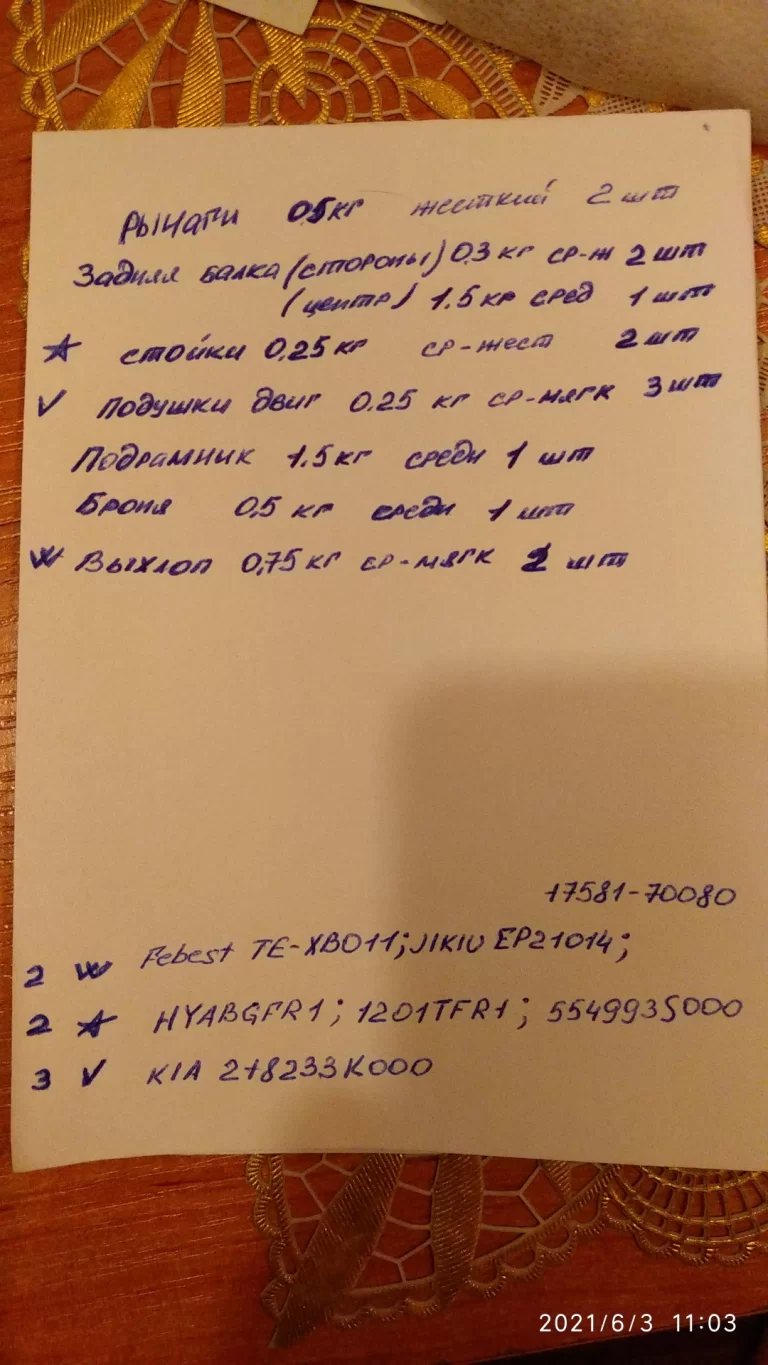 Рычаги 0,5 кг жесткий 2 шт
Задняя балка (стороны) 0,3 кг ср-ж 2 шт
(центр) 1.5 кг сред 1 шт
☆ стойки 0,25 кг ср-жест 2 шт
V подушки двиг 0.25 кг ср-мягк 3 шт
Подрамник 1.5 кг средн 1 шт
Броня 0,5 кг средн 1 шт
W Выхлоп 0,75 кг ср-мягк 2 шт
17581-70080
2 W Febest TE-XB011; JIKIU EP21014;
2 ☆ HYABGFR1; 1201TFR1; 554993S000
3 V KIA 278233K000
2021/6/3 11:03